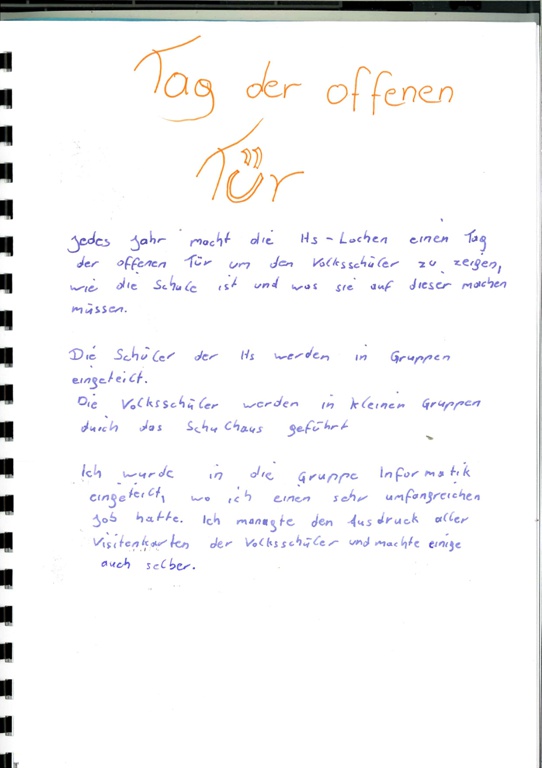 Tag der offenen
Tür
Jedes Jahr macht die Hs-Lochen einen Tag
der offenen Tür um den Volksschüler zu zeigen,
wie die Schule ist und was sie auf dieser machen
müssen.
Die Schüler der Hs werden in Gruppen
eingeteilt.
Die Volksschüler werden in kleinen Gruppen
durch das Schulhaus geführt
Ich wurde in die Gruppe Informatik
eingeteilt, wo ich einen sehr umfangreichen
Job hatte. Ich managte den Ausdruck aller
Visitenkarten der Volksschüler und machte einige
auch selber.